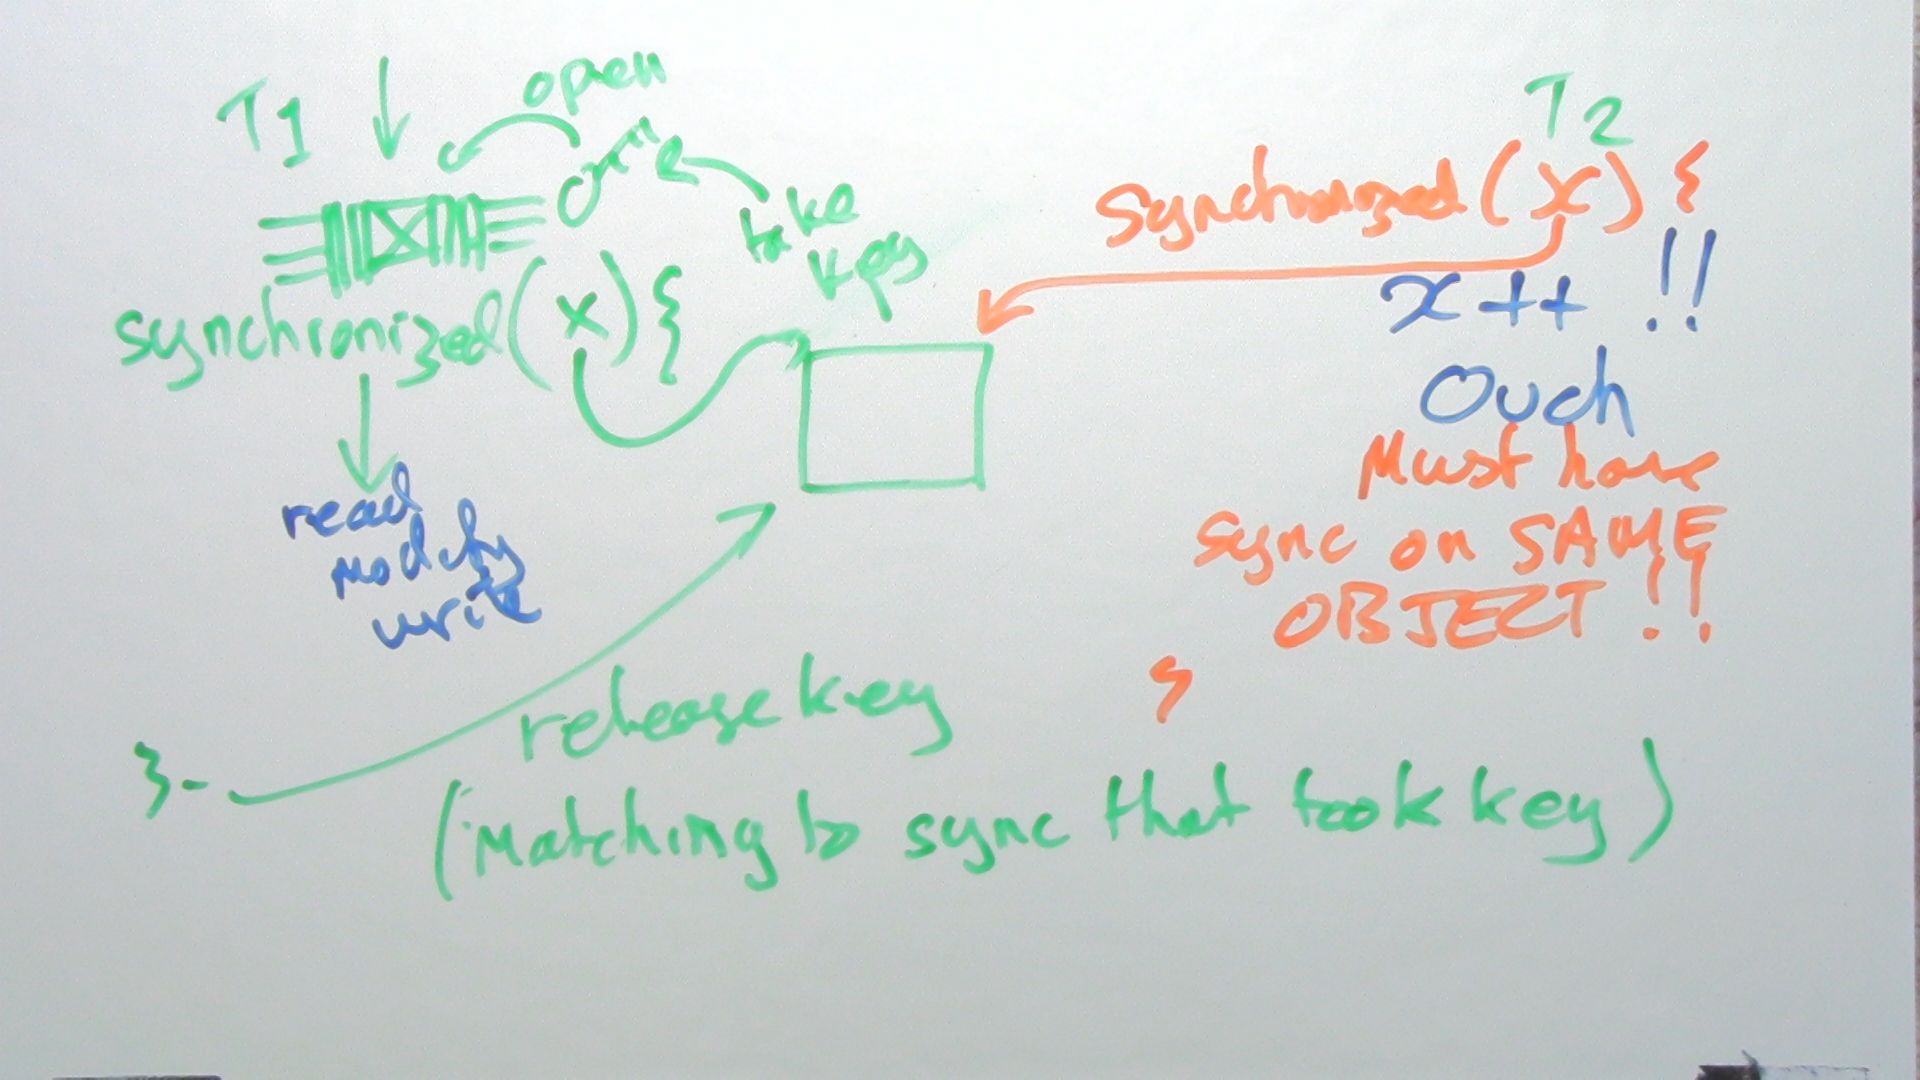 T1
open
take
key
synchronized(x){
read
modify
write
}
release key
(Matching to sync that took key)
T2
synchronized(x){
x++ !!
Ouch
Must have
sync on SAME
OBJECT!!
}